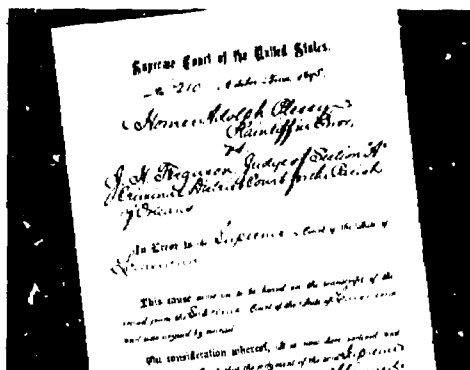 Supreme Court of the United States.
No. 210, October Term, 1895.
Homer Adolph Plessy
Plaintiff in Error,
vs.
J. H. Ferguson, Judge of Section "A"
Criminal District Court for the Parish
of Orleans
In Error to the Supreme Court of the State of
Louisiana
This cause came on to be heard on the transcript of the
record from the Supreme Court of the State of Louisiana
and was argued by counsel.
On consideration whereof, It is now here ordered and
that the judgment of the said Supreme